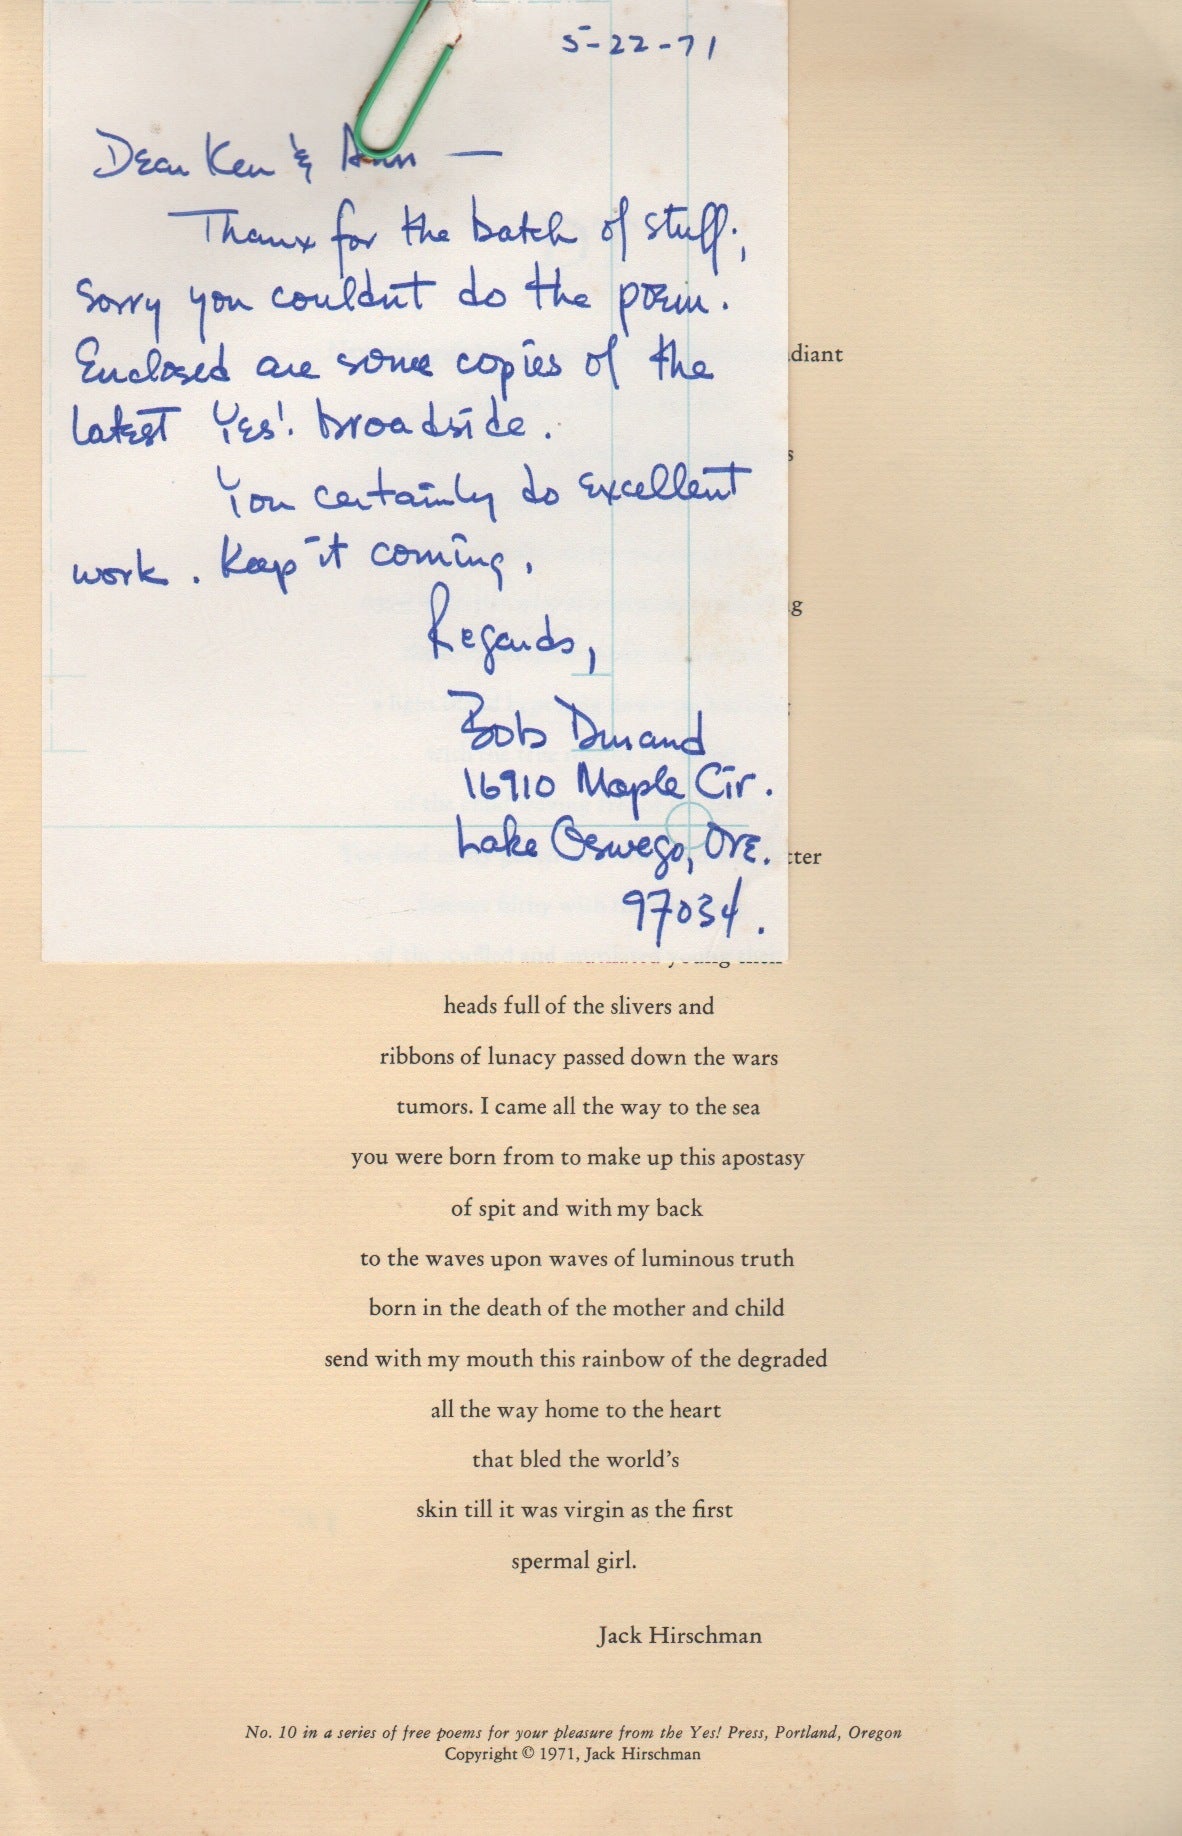 5-22-71
Dear Ken & Ann —
Thanx for the batch of stuff;
sorry you couldnt do the poem.
Enclosed are some copies of the
latest Yes! broadside.
You certainly do excellent
work. Keep it coming.
Regards,
Bob Durand
16910 Maple Cir.
Lake Oswego, Ore.
97034.
diant
s
g
tter
young men
heads full of the slivers and
ribbons of lunacy passed down the wars
tumors. I came all the way to the sea
you were born from to make up this apostasy
of spit and with my back
to the waves upon waves of luminous truth
born in the death of the mother and child
send with my mouth this rainbow of the degraded
all the way home to the heart
that bled the world's
skin till it was virgin as the first
spermal girl.
Jack Hirschman
No. 10 in a series of free poems for your pleasure from the Yes! Press, Portland, Oregon
Copyright © 1971, Jack Hirschman